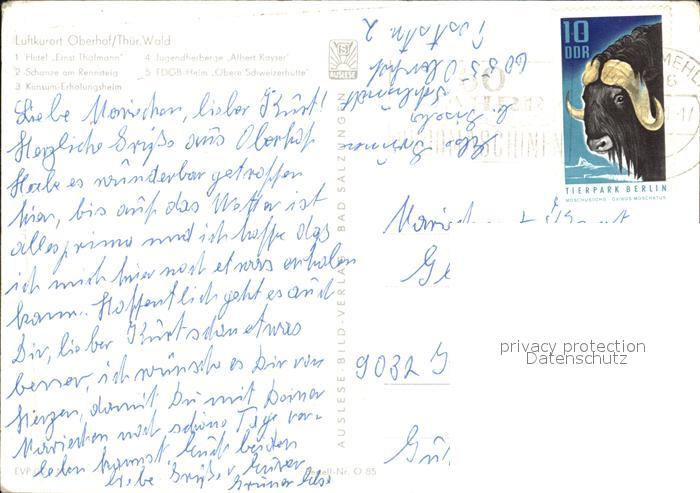 Luftkurort Oberhof/Thür. Wald
1 Hotel „Ernst Thälmann“ 4 Jugendherberge „Albert Kayser“
2 Schanze am Rennsteig 5 FDGB-Heim „Obere Schweizerhütte“
3 Konsum-Erholungsheim
AUSLESE
Liebe Mariechen, lieber Kurt!
Herzliche Grüße aus Oberhof
Habe es wunderbar getroffen
hier, bis auf das Wetter ist
alles prima und ich hoffe das
ich mich hier noch etwas erholen
kann. Hoffentlich geht es auch
Dir, lieber Kurt schon etwas
besser, ich wünsche es Dir von
Herzen, damit Du mit Deiner
Mariechen noch schöne Tage ver-
leben kannst. Euch beiden
liebe Grüße, Eure
EVP
Bestell-Nr. O 85
AUSLESE-BILD-VERLAG BAD SALZUNGEN
6085 Oberhof
10
DDR
TIERPARK BERLIN
MOSCHUSOCHS · OVIBOS MOSCHATUS
MEHL
50
JAHRE
Mariechen Kurt
9032
privacy protection
Datenschutz